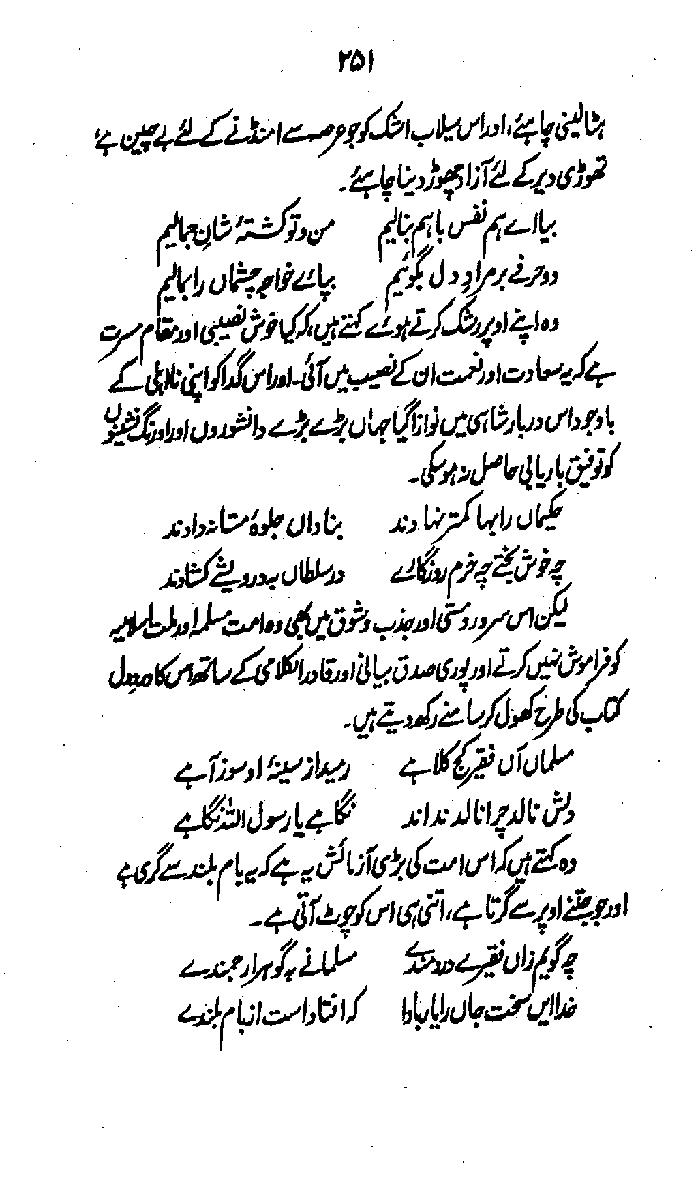 ۲۵۱
ہٹا لینی چاہئے، اور اس سیلاب اشک کو جو عرصہ سے امنڈنے کے لئے بے چین ہے
تھوڑی دیر کے لئے آزاد چھوڑ دینا چاہئے۔
بیا اے ہم نفس باہم بنالیم من و تو کشتۂ شانِ جمالیم
دو حرفے بر مرادِ دل بگوئیم بپائے خواجہ چشماں را بمالیم
وہ اپنے اوپر رشک کرتے ہوئے کہتے ہیں، کہ کیا خوش نصیبی اور مقام مسرت
ہے کہ یہ سعادت اور نعمت ان کے نصیب میں آئی۔ اور اس گدا کو اپنی نااہلی کے
باوجود اس دربار شاہی میں نوازا گیا جہاں بڑے بڑے دانشوروں اور اورنگ نشینوں
کو توفیق باریابی حاصل نہ ہو سکی۔
حکیماں را بہا کمتر نہادند بناداں جلوۂ مستانہ دادند
چہ خوش بختے چہ خرم روزگارے در سلطاں بہ درویشے کشادند
لیکن اس سرور و مستی اور جذب و شوق میں بھی وہ امت مسلمہ اور ملت اسلامیہ
کو فراموش نہیں کرتے اور پوری صدق بیانی اور قادر الکلامی کے ساتھ اس کا حال
کتاب کی طرح کھول کر سامنے رکھ دیتے ہیں۔
مسلماں آں فقیر کج کلاہے رمید از سینۂ او سوز آہے
دلش نالد چرا نالد نداند نگاہے یا رسول اللہ نگاہے
وہ کہتے ہیں کہ اس امت کی بڑی آزمائش یہ ہے کہ یہ بام بلند سے گری ہے
اور جو جتنے اوپر سے گرتا ہے، اتنی ہی اس کو چوٹ آتی ہے۔
چہ گویم زاں فقیرے دردمندے مسلمانے بہ گوہر ارجمندے
خدا ایں سخت جاں را یار بادا کہ افتاد است از بام بلندے